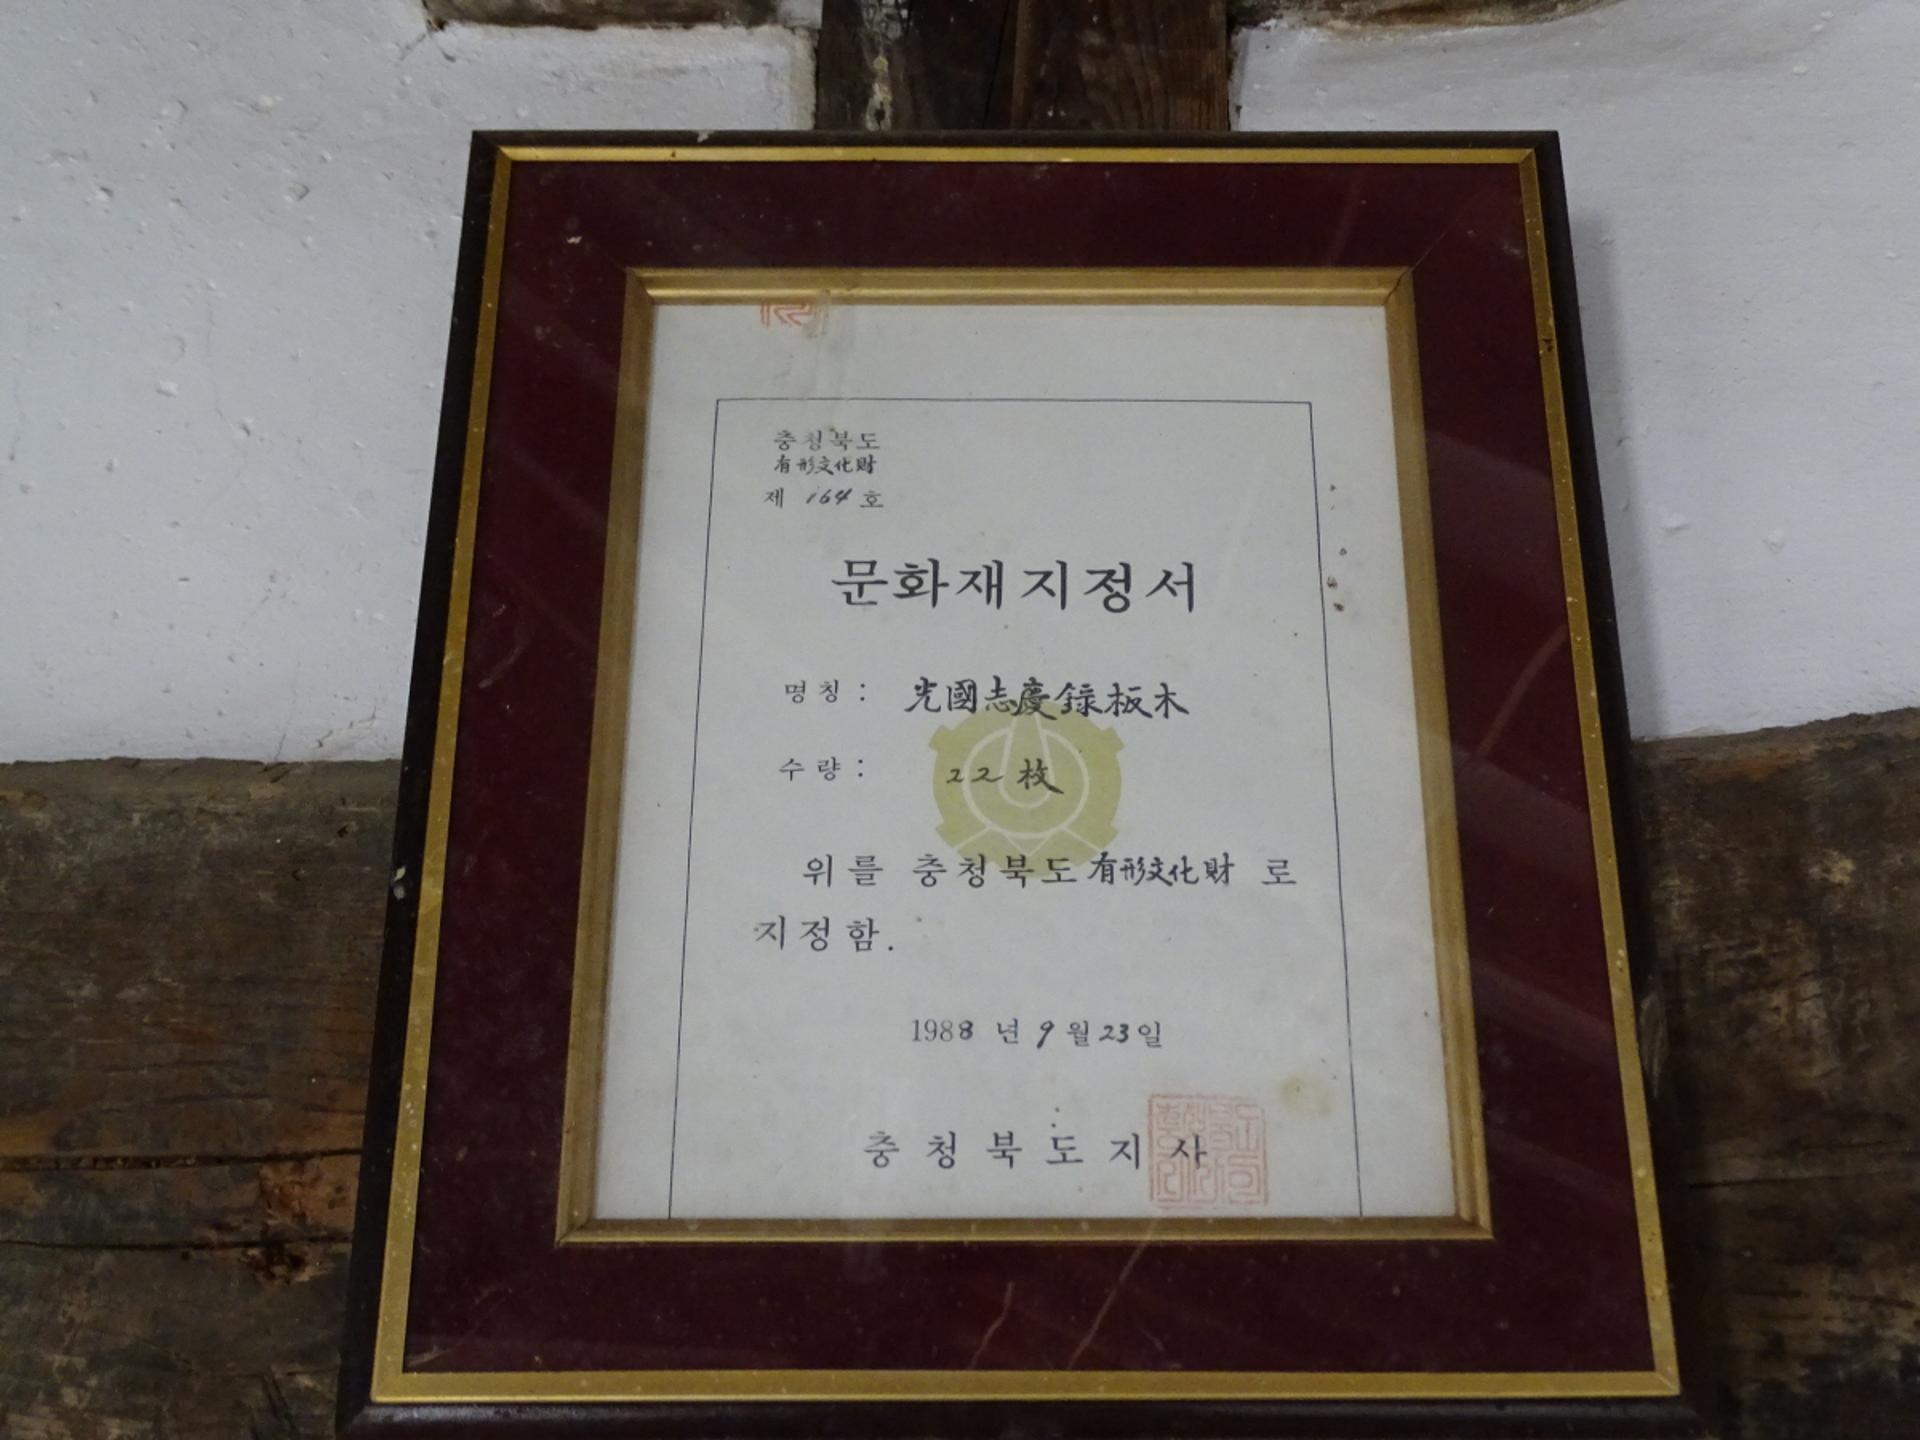 충청북도
有形文化財
제 164 호
문화재지정서
명칭: 光國志慶錄板木
수량: 22 枚
위를 충청북도 有形文化財 로
지정함.
1988 년 9 월 23 일
충청북도지사